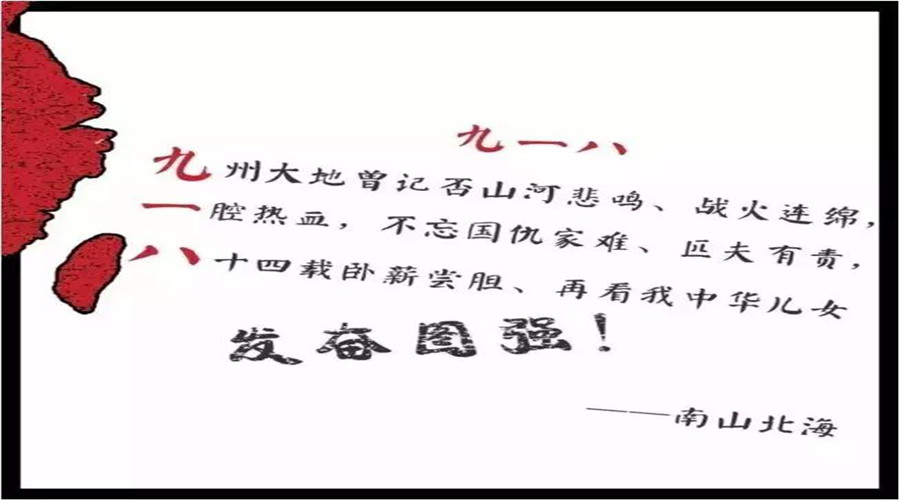 九一八
九州大地曾记否山河悲鸣、战火连绵，
一腔热血，不忘国仇家难、匹夫有责，
八十四载卧薪尝胆、再看我中华儿女
发奋图强！
——南山北海